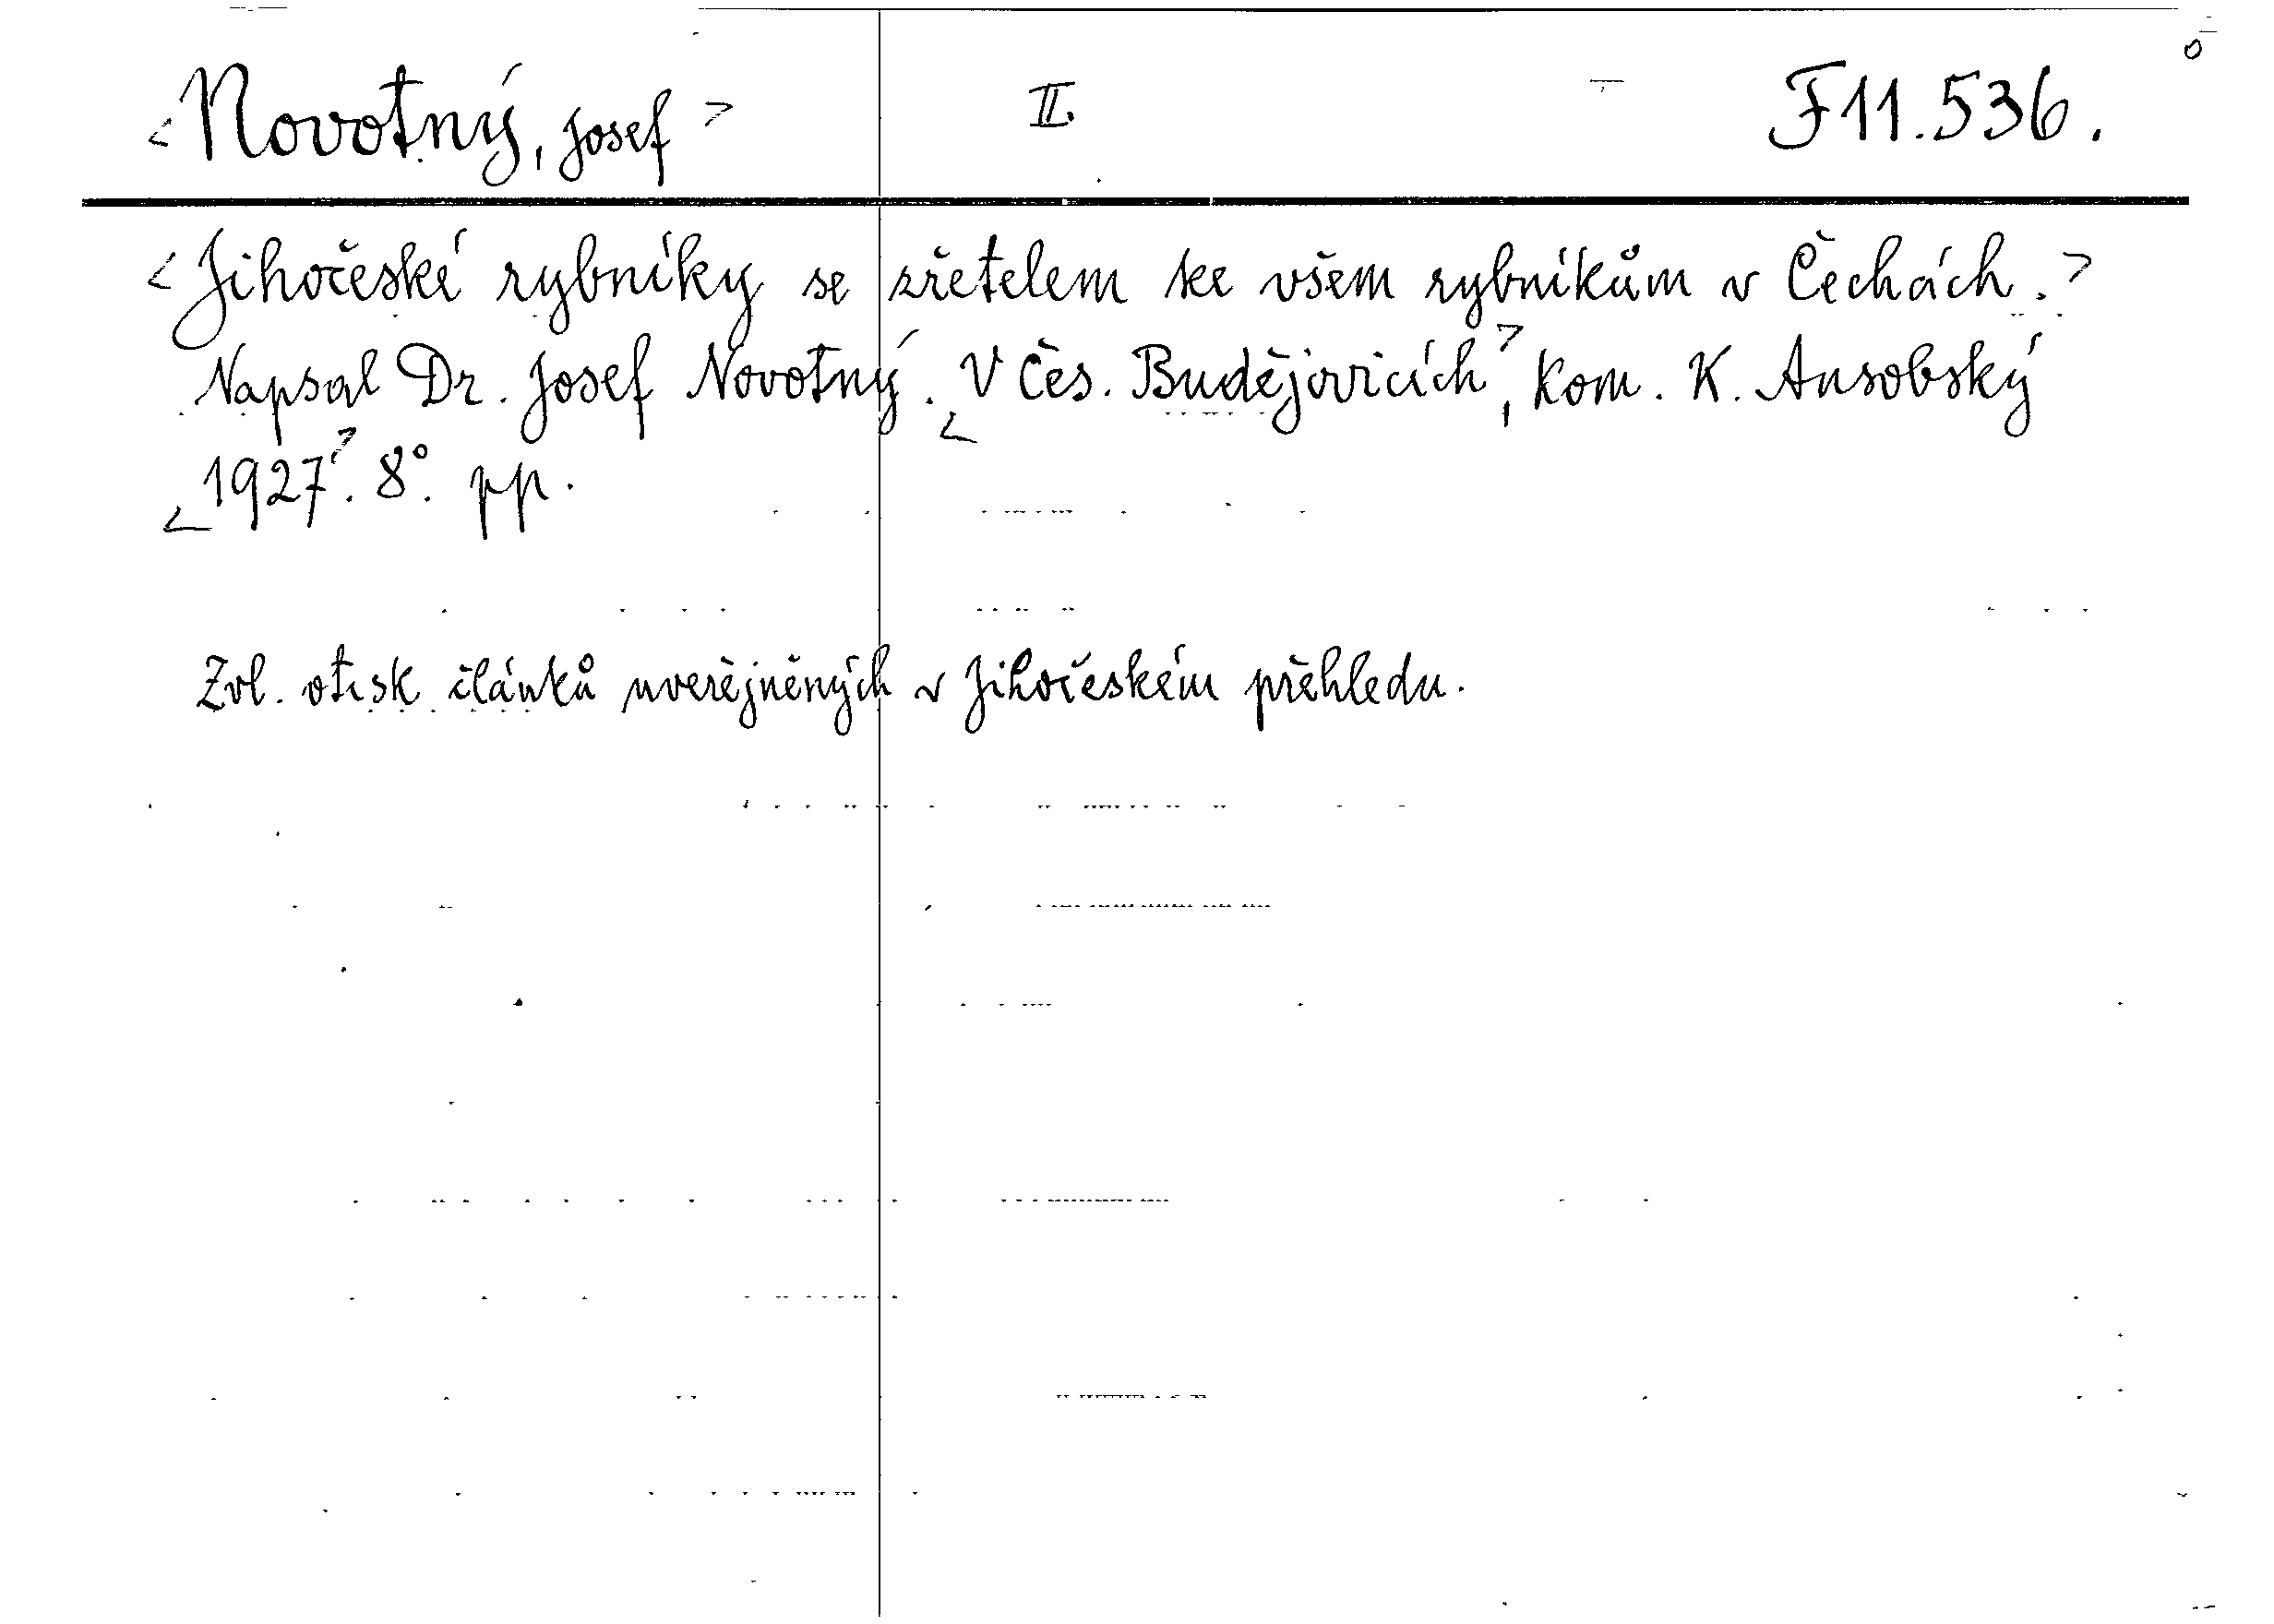 <Novotný, Josef> II. F11.536.
<Jihočeské rybníky se zřetelem ke všem rybníkům v Čechách.>
Napsal Dr. Josef Novotný. <V Čes. Budějovicích>, Kom. K. Ausobský
<1927>. 8°. pp.
Zvl. otisk článků uveřejněných v Jihočeském přehledu.